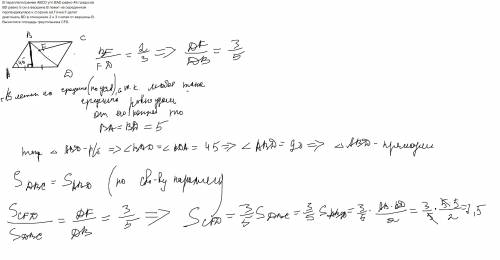 В параллелограмме ABCD угол BAD равен 45 градусов
BD равно 5 см а вершина B лежит на серединном
перпендикуляре к стороне ad.Точка F делит
диагональ BD в отношении 2 к 3 считая от вершины B
Вычислите площадь треугольника CFD
B C
F
45
A D
BF/FD = 2/3 => DF/DB = 3/5
т.к. любая точка
серединного
от его концов то
BA = BD = 5
тогда △ ABD - р/б => ∠BAD = ∠BDA = 45 => ∠ABD = 90 => △ ABD - прямоуг
S DBC = S ABD (по св-ву параллел)
S CFD / S DBC = DF/DB = 3/5 => S CFD = 3/5 S DBC = 3/5 S ABD = 3/5 · AB·BD/2 = 3/5 · 5·5/2 = 7,5